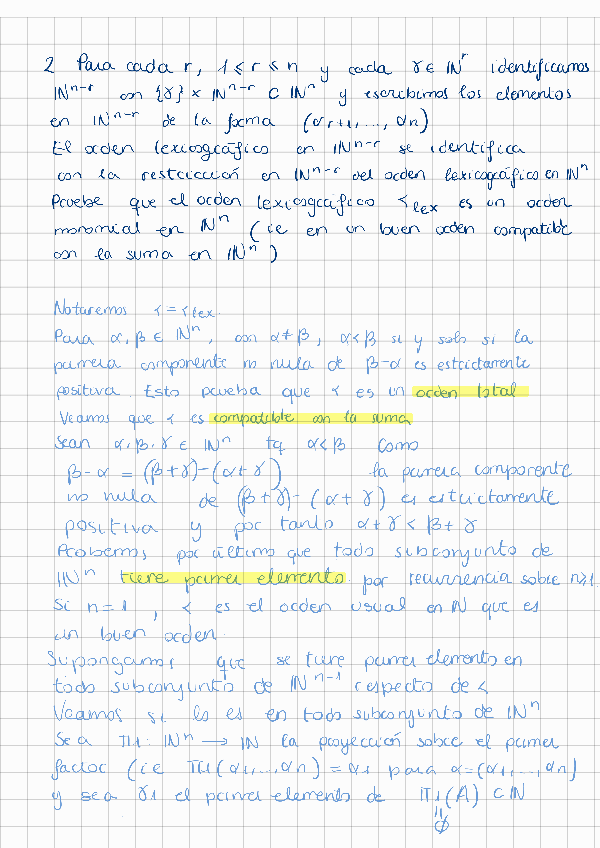 2 Para cada r, 1 ≤ r ≤ n y cada γ ∈ ℕ^r identificamos
ℕ^{n-r} con {γ} × ℕ^{n-r} ⊂ ℕ^n y escribimos los elementos
en ℕ^{n-r} de la forma (α_{r+1}, ..., α_n)
El orden lexicográfico en ℕ^{n-r} se identifica
con la restricción en ℕ^{n-r} del orden lexicográfico en ℕ^n
Pruebe que el orden lexicográfico <_lex es un orden
monomial en ℕ^n (ie en un buen orden compatible
con la suma en ℕ^n)
Notaremos < = <_lex.
Para α, β ∈ ℕ^n, con α ≠ β, α < β si y solo si la
primera componente no nula de β-α es estrictamente
positiva. Esto prueba que < es un orden total
Veamos que < es compatible con la suma
Sean α, β, γ ∈ ℕ^n tq α < β Como
β-α = (β+γ)-(α+γ) la primera componente
no nula de (β+γ)-(α+γ) es estrictamente
positiva y por tanto α+γ < β+γ
Probemos, por último que todo subconjunto de
ℕ^n tiene primer elemento por recurrencia sobre n≥1.
Si n=1, < es el orden usual en ℕ que es
un buen orden.
Supongamos que se tiene primer elemento en
todo subconjunto de ℕ^{n-1} respecto de <
Veamos si lo es en todo subconjunto de ℕ^n
Sea π1: ℕ^n → ℕ la proyección sobre el primer
factor (ie π1(α1, ..., αn) = α1 para α=(α1, ..., αn)
y sea γ1 el primer elemento de π1(A) ⊂ ℕ
∦
∅